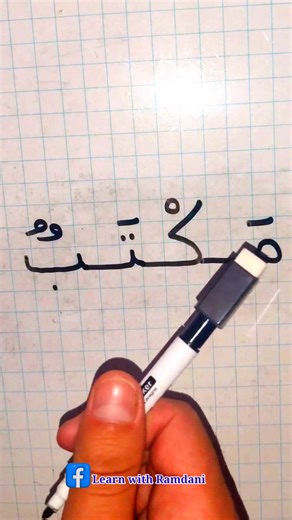 مَكْتَبٌ
Learn with Ramdani